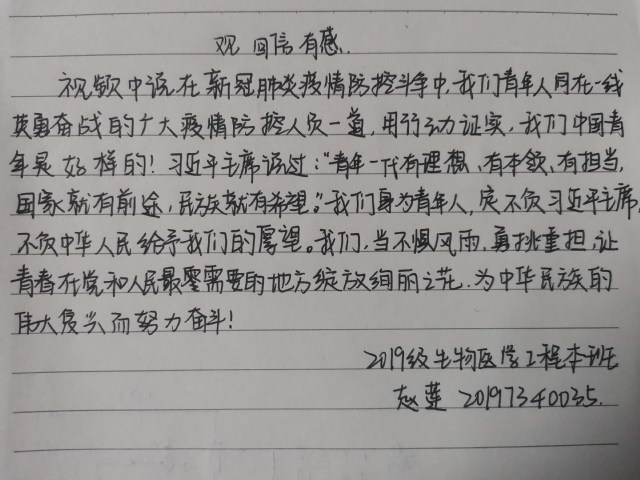 观 回信有感.
视频中说在新冠肺炎疫情防控斗争中,我们青年人同在一线
英勇奋战的广大疫情防控人员一道,用行动证实,我们中国青
年是好样的!习近平主席说过:“青年一代有理想、有本领、有担当,
国家就有前途,民族就有希望。”我们身为青年人,定不负习近平主席,
不负中华人民给予我们的厚望。我们,当不惧风雨,勇挑重担,让
青春在党和人民最需要的地方绽放绚丽之花.为中华民族的
伟大复兴而努力奋斗!
2019级生物医学工程本班
赵莲 20197340035.